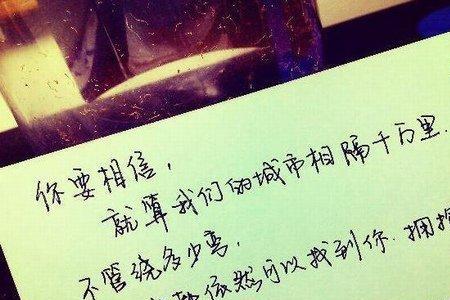 你要相信，
就算我们的城市相隔千万里.
不管绕多少弯，
依然可以找到你.拥抱